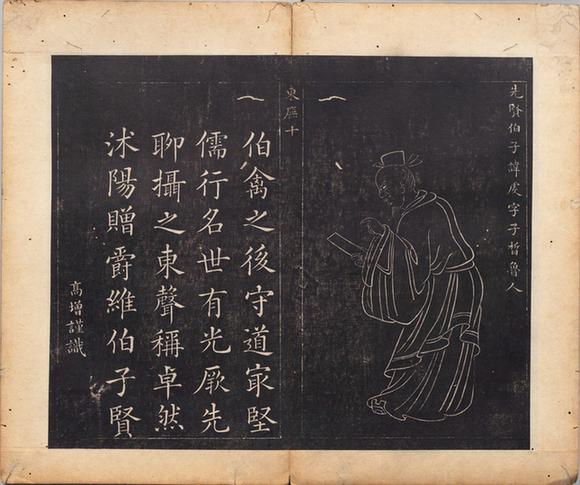 先賢伯子諱處字子晳魯人
東廡十
伯禽之後守道冣堅
儒行名世有光厥先
聊攝之東聲稱卓然
沭陽贈爵維伯子賢
高增謹識